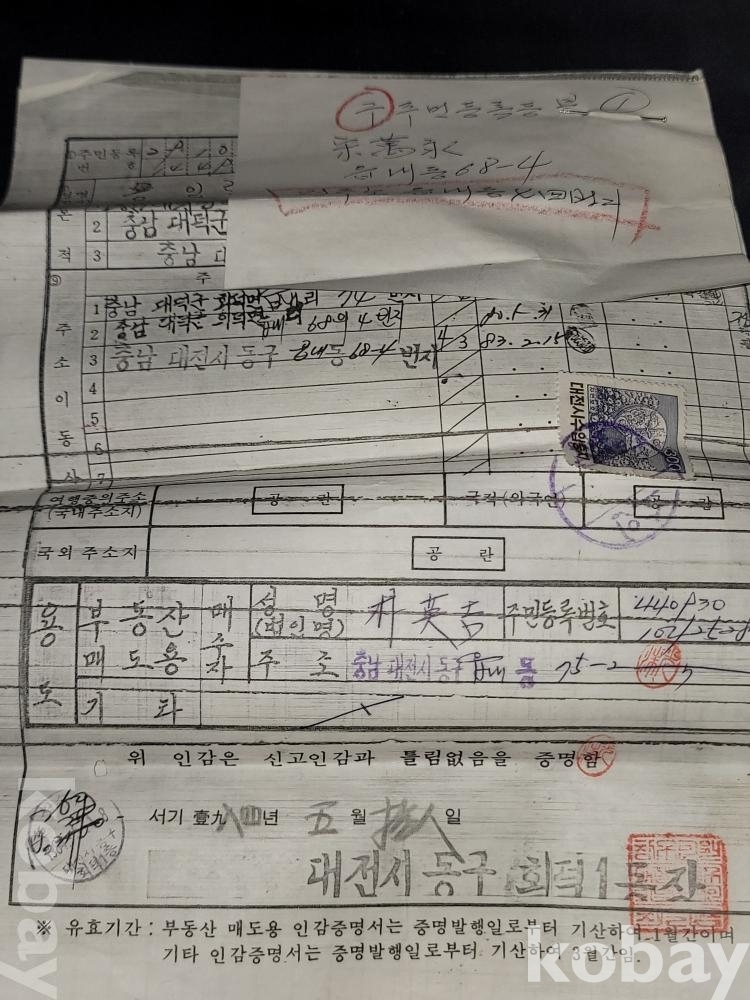 구 주민등록등본 ①
宋萬永
읍내동 68-4
주민등록
번 호
본
적
2 충남 대덕군
3 충남 대
주
주 소 이 동 사
1 충남 대덕군 회덕면 읍내리 74 번지
2 충남 대덕군 회덕면 읍내리 68의 4 번지
3 충남 대전시 동구 읍내동 68-4 번지 43 83.2.15
4
5
6
7
대전시수입증지
600
여행증의주소
(국내주소지)
공 란
국적(외국인)
공 란
국외 주소지
공 란
용 도
부동산 매도용
매수자
성 명
(법인명)
朴英吉
주민등록번호
주 소
충남 대전시 동구 읍내동 75-2
기 타
위 인감은 신고인감과 틀림없음을 증명함
서기 壹九八四年 五 월 拾八 일
대전시 동구 회덕1동장
※ 유효기간 : 부동산 매도용 인감증명서는 증명발행일로부터 기산하여 1월간이며
기타 인감증명서는 증명발행일로부터 기산하여 3월간임.
kobay
kobay